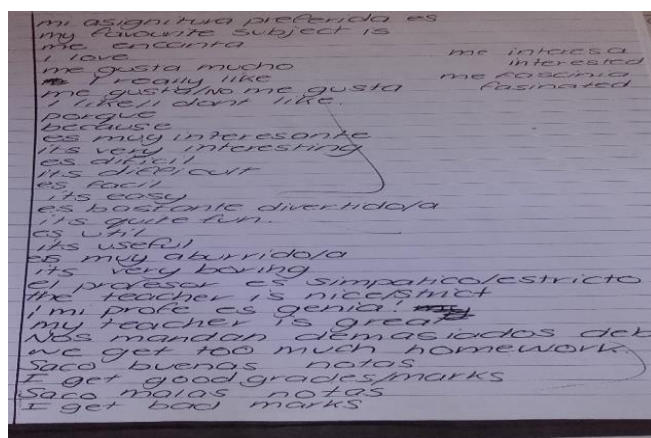 mi asignitura preferida es
my favourite subject is
me encanta
I love
me gusta mucho
I really like
me gusta/No me gusta
I like/I dont like.
porque
because
es muy interesante
its very interesting
es dificil
its difficult
es facil
its easy
es bastante divertido/a
its quite fun.
es util
its useful
es muy aburrido/a
its very boring
el profesor es simpatico/estricto
the teacher is nice/strict
¡mi profe es genial!
my teacher is great
Nos mandan demasiados deb
we get too much homework.
Saco buenas notas
I get good grades/marks
Saco malas notas
I get bad marks
me interesa
interested
me fascinia
fasinated